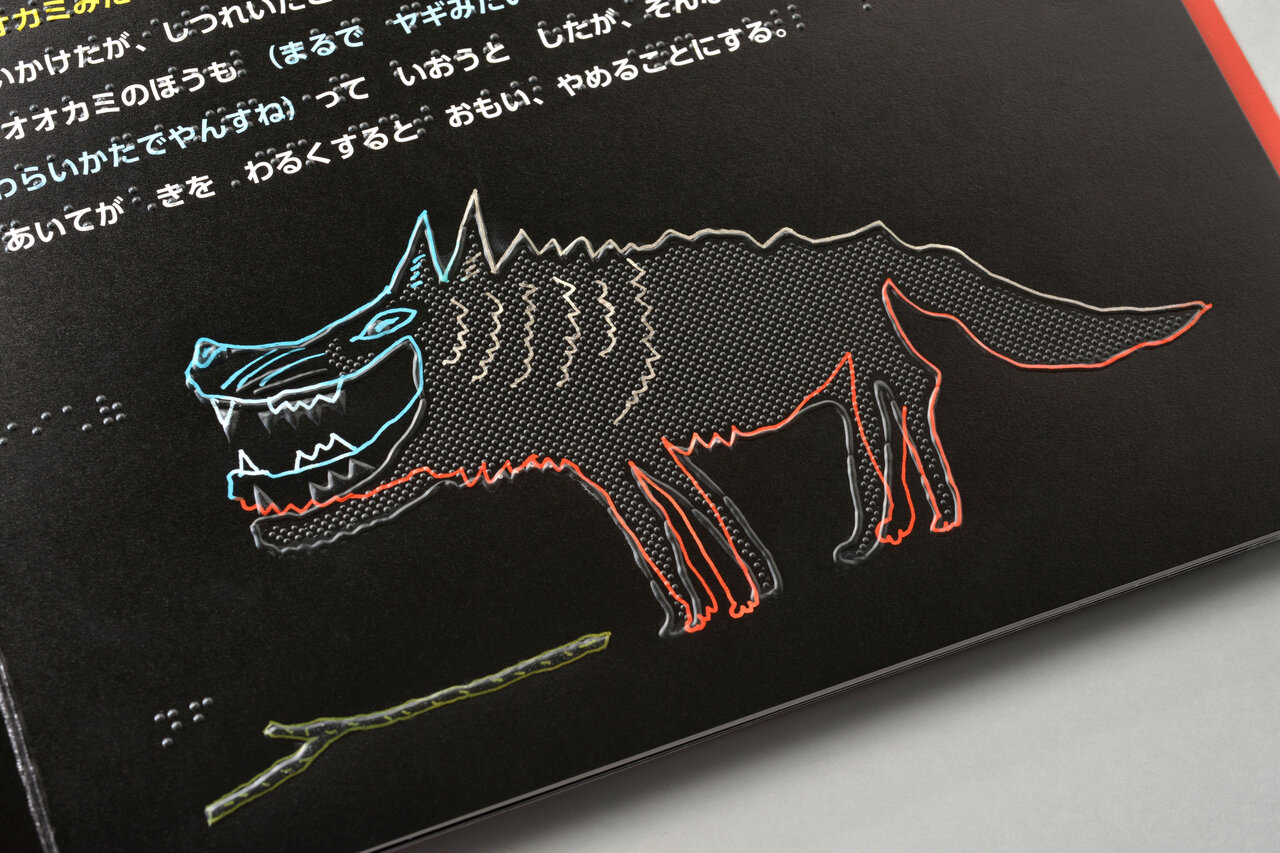 オカミみた
いかけたが、しつれいだと
オオカミのほうも （まるで ヤギみたい
わらいかたでやんすね）って いおうと したが、そんな
あいてが きを わるくすると おもい、やめることにする。